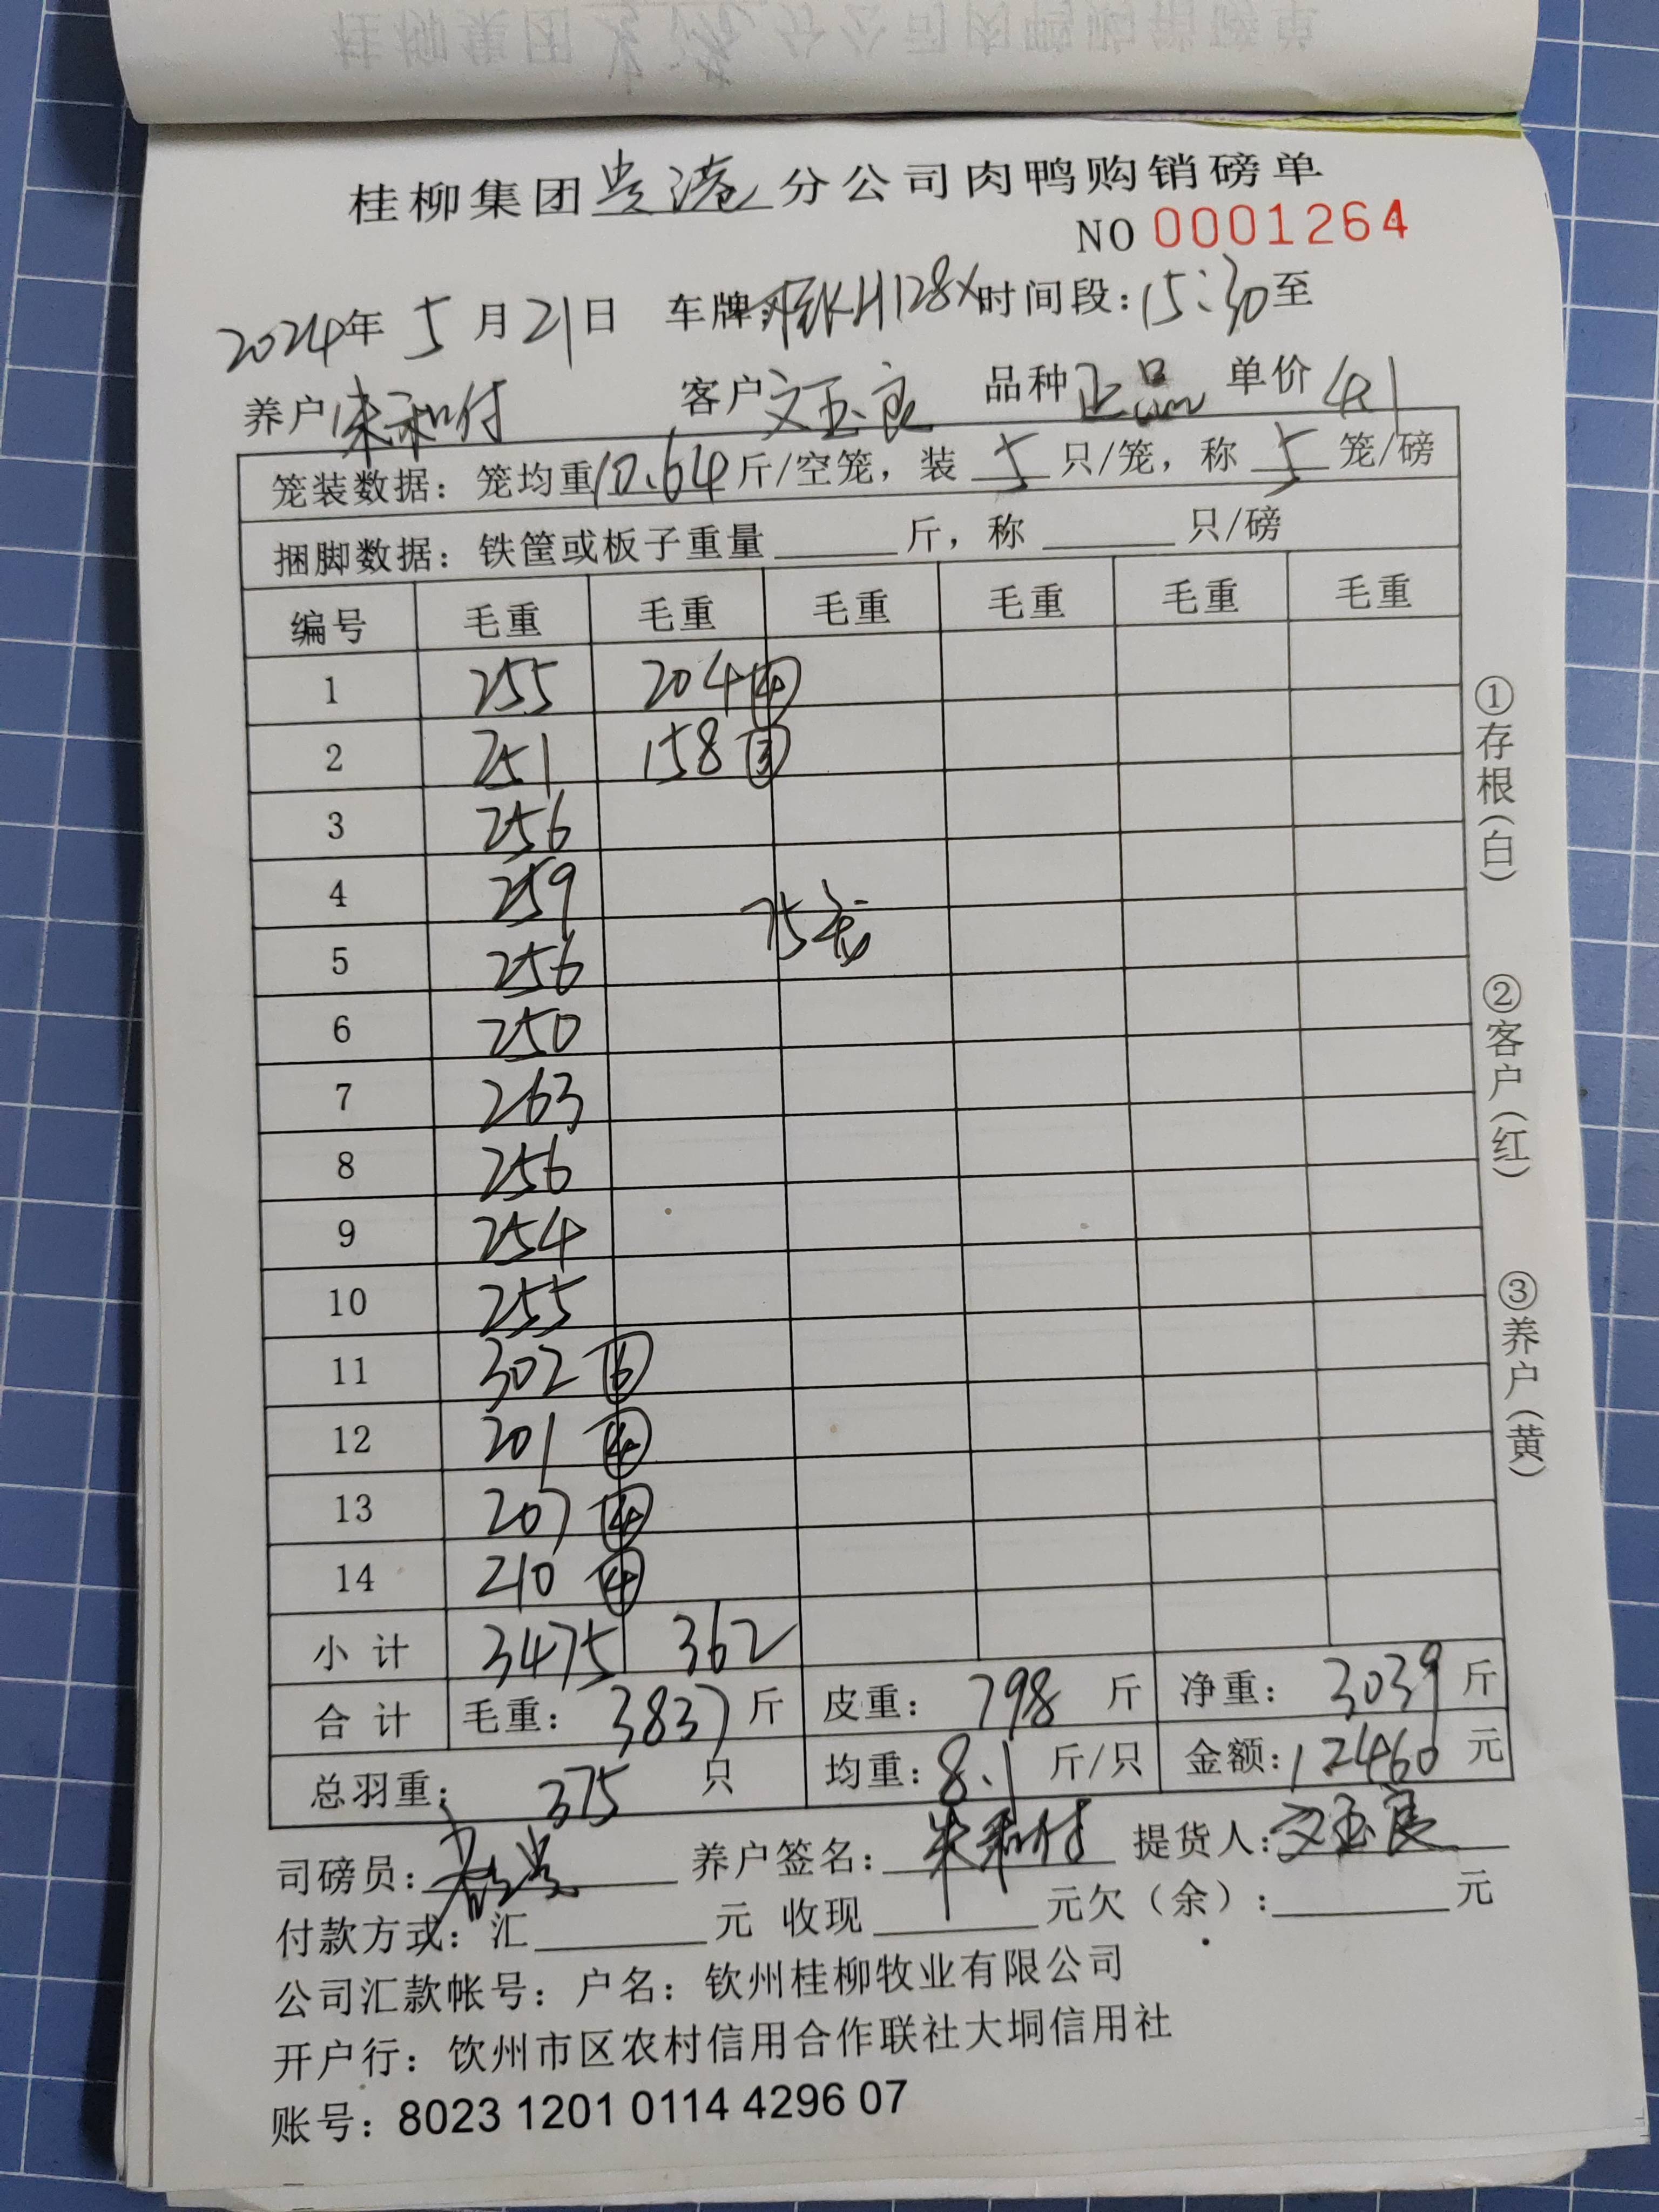 桂柳集团贵港分公司肉鸭购销磅单
NO 0001264
2024年 5 月 21 日 车牌: H128X 时间段: 15:30 至
养户 朱和付 客户 文玉良 品种 正品 单价 4.1
笼装数据: 笼均重 10.64 斤/空笼, 装 5 只/笼, 称 5 笼/磅
捆脚数据: 铁筐或板子重量 ______ 斤, 称 ______ 只/磅
编号 毛重 毛重 毛重 毛重 毛重 毛重
1 255 204 ④
2 251 158 ③
3 256
4 259
75笼
5 256
6 250
7 263
8 256
9 254
10 255
11 302 ⑥
12 201 ④
13 207 ④
14 210 ④
小计 3475 362
合计 毛重: 3837 斤 皮重: 798 斤 净重: 3039 斤
总羽重: 375 只 均重: 8.1 斤/只 金额: 12460 元
司磅员: 养户签名: 朱和付 提货人: 文玉良
付款方式: 汇______元 收现______元欠(余):______元
公司汇款帐号: 户名: 钦州桂柳牧业有限公司
开户行: 钦州市区农村信用合作联社大垌信用社
账号: 8023 1201 0114 4296 07
①存根(白)
②客户(红)
③养户(黄)